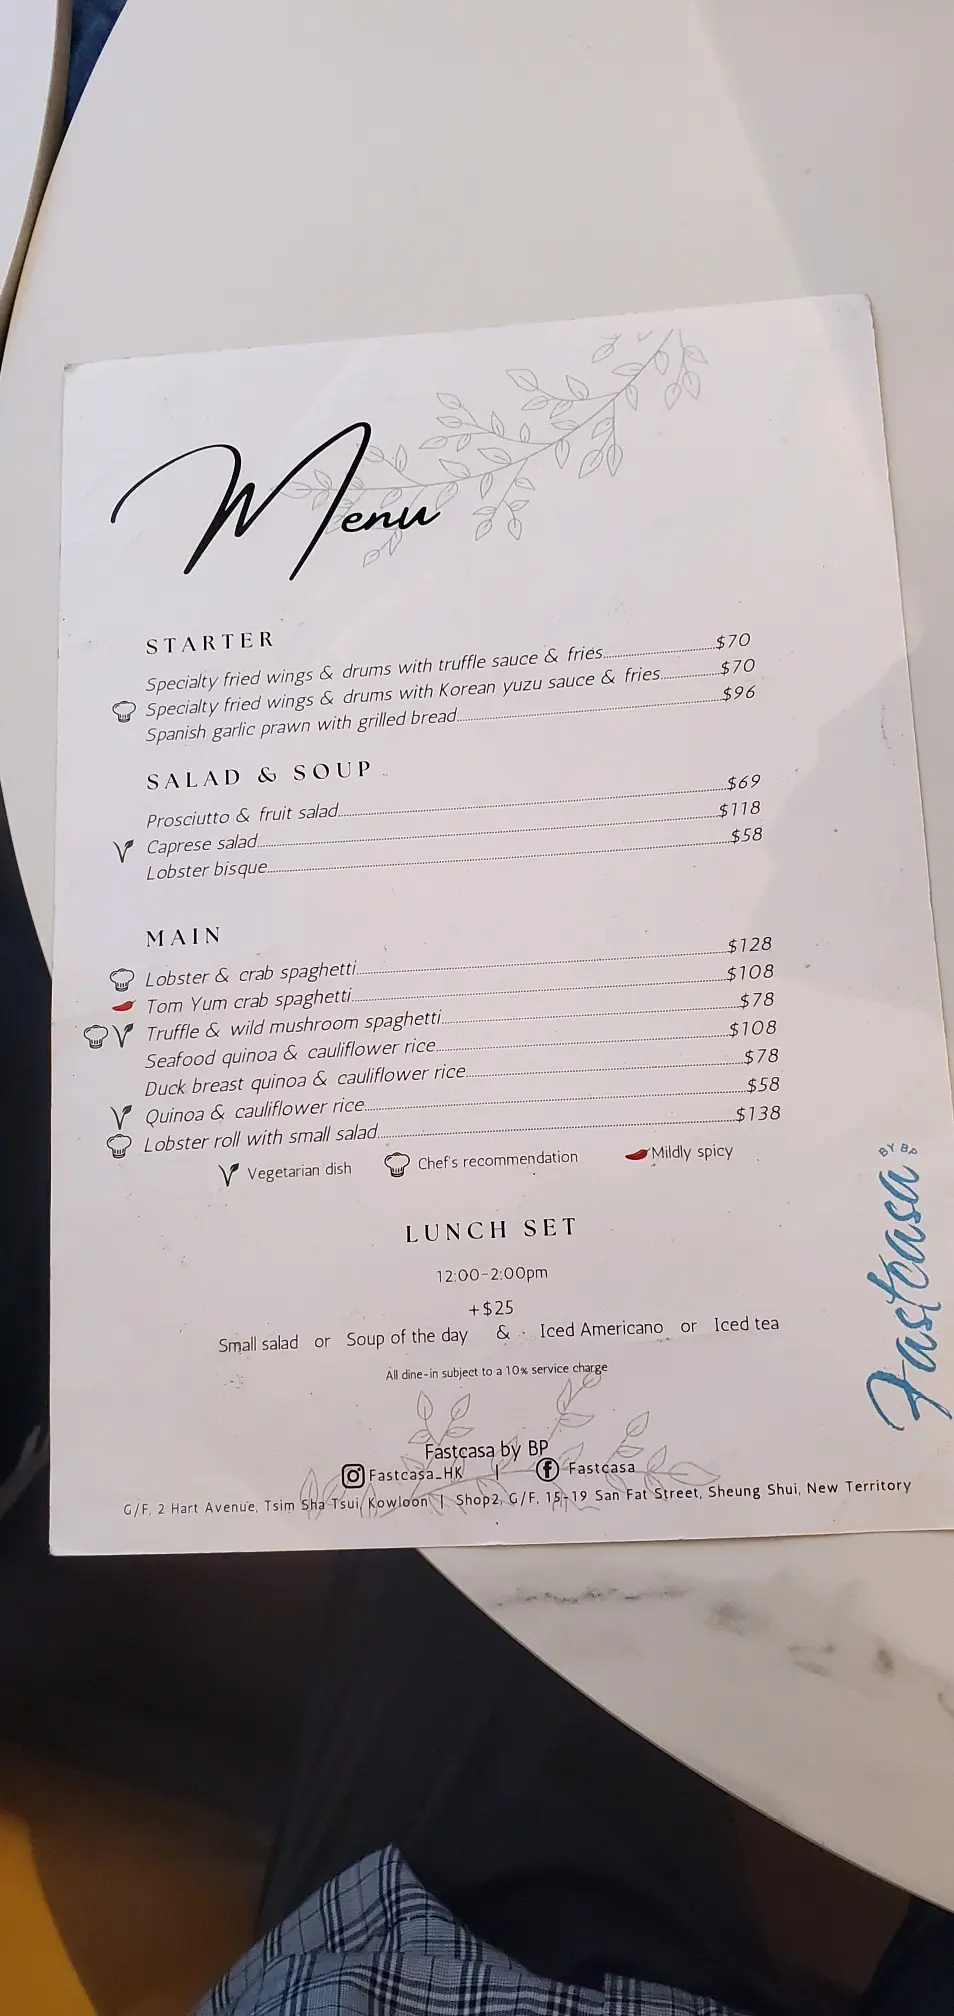 Menu
STARTER
Specialty fried wings & drums with truffle sauce & fries $70
Specialty fried wings & drums with Korean yuzu sauce & fries $70
Spanish garlic prawn with grilled bread $96
SALAD & SOUP
Prosciutto & fruit salad $69
Caprese salad $118
Lobster bisque $58
MAIN
Lobster & crab spaghetti $128
Tom Yum crab spaghetti $108
Truffle & wild mushroom spaghetti $78
Seafood quinoa & cauliflower rice $108
Duck breast quinoa & cauliflower rice $78
Quinoa & cauliflower rice $58
Lobster roll with small salad $138
Vegetarian dish Chef's recommendation Mildly spicy
LUNCH SET
12:00-2:00pm
+$25
Small salad or Soup of the day & Iced Americano or Iced tea
All dine-in subject to a 10% service charge
Fastcasa by BP
Fastcasa_HK | Fastcasa
G/F, 2 Hart Avenue, Tsim Sha Tsui, Kowloon | Shop2, G/F, 15-19 San Fat Street, Sheung Shui, New Territory
Fastcasa
BY BP